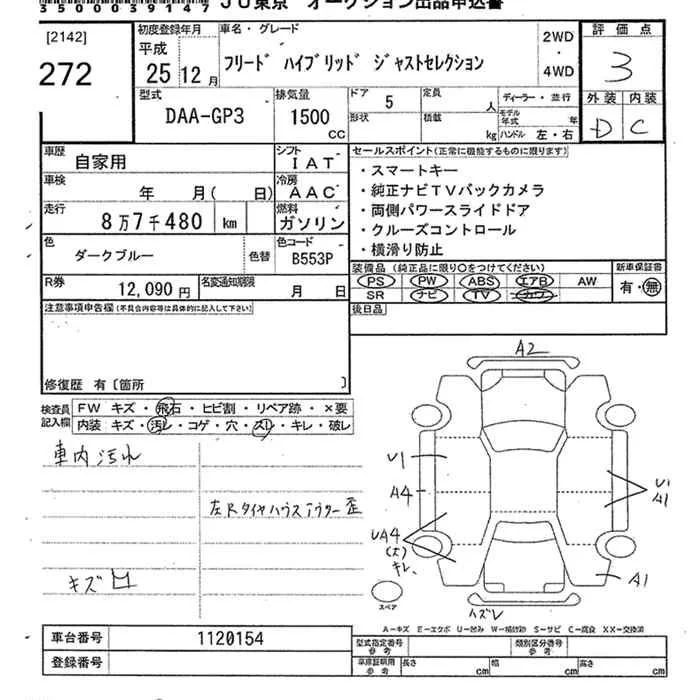 35000391 47 JU東京 オークション出品申込書
[2142]
272
初度登録年月
平成
25 12月
車名・グレード
フリード ハイブリッド ジャストセレクション
2WD
・
4WD
評価点
3
外装 内装
D C
型式
DAA-GP3
排気量
1500
cc
ドア 5
定員 人
形状
積載 kg
ディーラー・並行
モデル年式 年
ハンドル 左・右
車歴
自家用
シフト
IAT
車検
年 月( 日)
冷房
AAC
走行
8万7千480 km
燃料
ガソリン
色
ダークブルー
色替
色コード
B553P
R券
12,090円
名変通知期限
月 日
セールスポイント(正常に機能するものに限ります)
・スマートキー
・純正ナビTVバックカメラ
・両側パワースライドドア
・クルーズコントロール
・横滑り防止
装備品(純正品に限り○をつけてください)
PS PW ABS エアB AW
SR ナビ TV カワ
新車保証書
有・無
後日品
注意事項申告欄(不具合内容等は具体的に記入して下さい)
修復歴 有〔箇所 〕
検査員
記入欄
FW キズ・飛石・ヒビ割・リペア跡・×要
内装 キズ・汚レ・コゲ・穴・スレ・キレ・破レ
車内汚れ
左Rタイヤハウスアウター歪
キズ凹
A2
U1
A4
UA4
(大)
キレ、
U1
A1
A1
ハズレ
スペア
A−キズ E−エクボ U−凹み W−補修跡 S−サビ C−腐食 XX−交換済
車台番号 1120154
登録番号
型式指定番号
参考
類別区分番号
参考
車庫証明用
参考
長さ cm
幅 cm
高さ cm